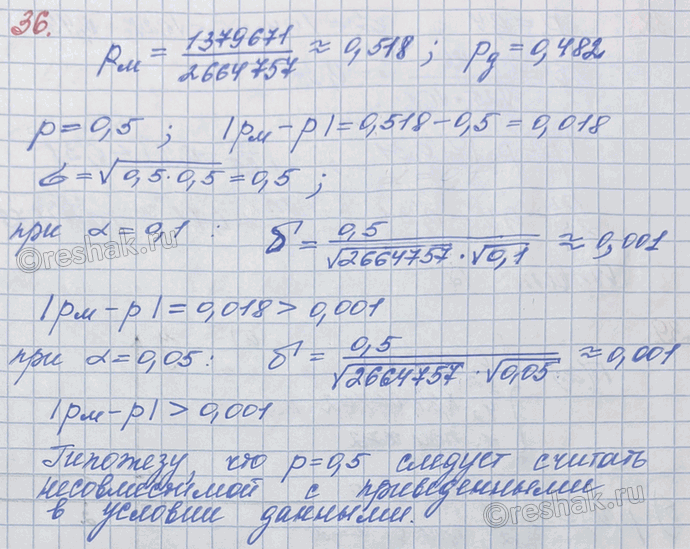 36.
pм = 1379671/2664757 ≈ 0,518 ; pд = 0,482
p = 0,5 ; |pм − p| = 0,518 − 0,5 = 0,018
б = √(0,5·0,5) = 0,5 ;
при α = 0,1 : δ = 0,5/(√2664757 · √0,1) ≈ 0,001
|pм − p| = 0,018 > 0,001
при α = 0,05 : δ = 0,5/(√2664757 · √0,05) ≈ 0,001
|pм − p| > 0,001
Гипотезу, что p = 0,5 следует считать
несовместимой с приведенными
в условии данными.
©reshak.ru
©reshak.ru
©reshak.ru
©reshak.ru